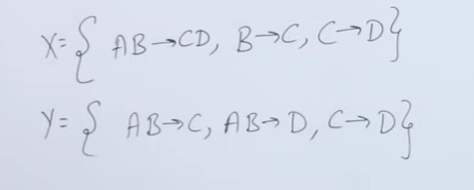 X= { AB→CD, B→C, C→D}
Y= { AB→C, AB→D, C→D}